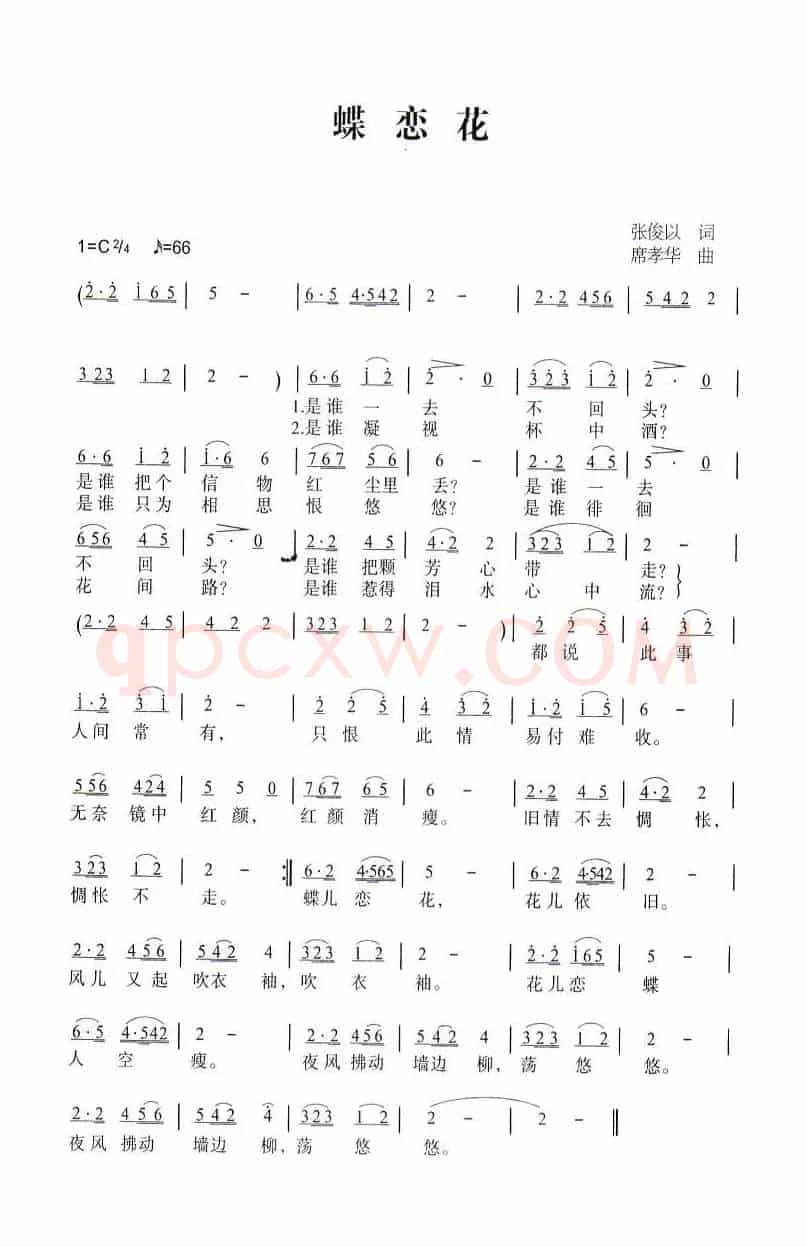 蝶 恋 花
1=C 2/4 ♪=66
张俊以 词
席孝华 曲
(2·2 165 | 5 - | 6·5 4·542 | 2 - | 2·2 456 | 542 2 |
323 12 | 2 - ) | 6·6 1 2 | 2 · 0 | 323 12 | 2 · 0 |
1.是谁一去 不回头?
2.是谁凝视 杯中酒?
6·6 1 2 | 1·6 6 | 767 56 | 6 - | 2·2 45 | 5 · 0 |
是谁把个 信物 红尘里 丢? 是谁一去
是谁只为 相思 恨悠 悠? 是谁徘徊
656 45 | 5 · 0 | 2·2 45 | 4·2 2 | 323 12 | 2 - |
不回头? 是谁把颗 芳心 带走?
花间路? 是谁惹得 泪水 心中流?
(2·2 45 | 422 | 323 12 | 2 - ) | 2 25 | 4 32 |
qpcxw.COM
都说 此事
1·2 35 | 2 - | 2 25 | 4 32 | 1·2 15 | 6 - |
人间常 有, 只恨 此情 易付难 收。
556 424 | 5 5 0 | 767 65 | 6 - | 2·2 456 | 4·2 2 |
无奈镜中 红颜, 红颜消 瘦。 旧情不去 惆怅,
323 12 | 2 - :| 6·2 4·565 | 5 - | 6·2 4·542 | 2 - |
惆怅不 走。 蝶儿恋 花, 花儿依 旧。
2·2 456 | 542 4 | 323 12 | 2 - | 2·2 165 | 5 - |
风儿又起 吹衣袖,吹衣 袖。 花儿恋 蝶
6·5 4·542 | 2 - | 2·2 456 | 542 4 | 323 12 | 2 - |
人空 瘦。 夜风拂动 墙边柳,荡悠 悠。
2·2 456 | 542 4 | 323 12 | 2 - | 2 - ‖
夜风拂动 墙边柳,荡悠 悠。